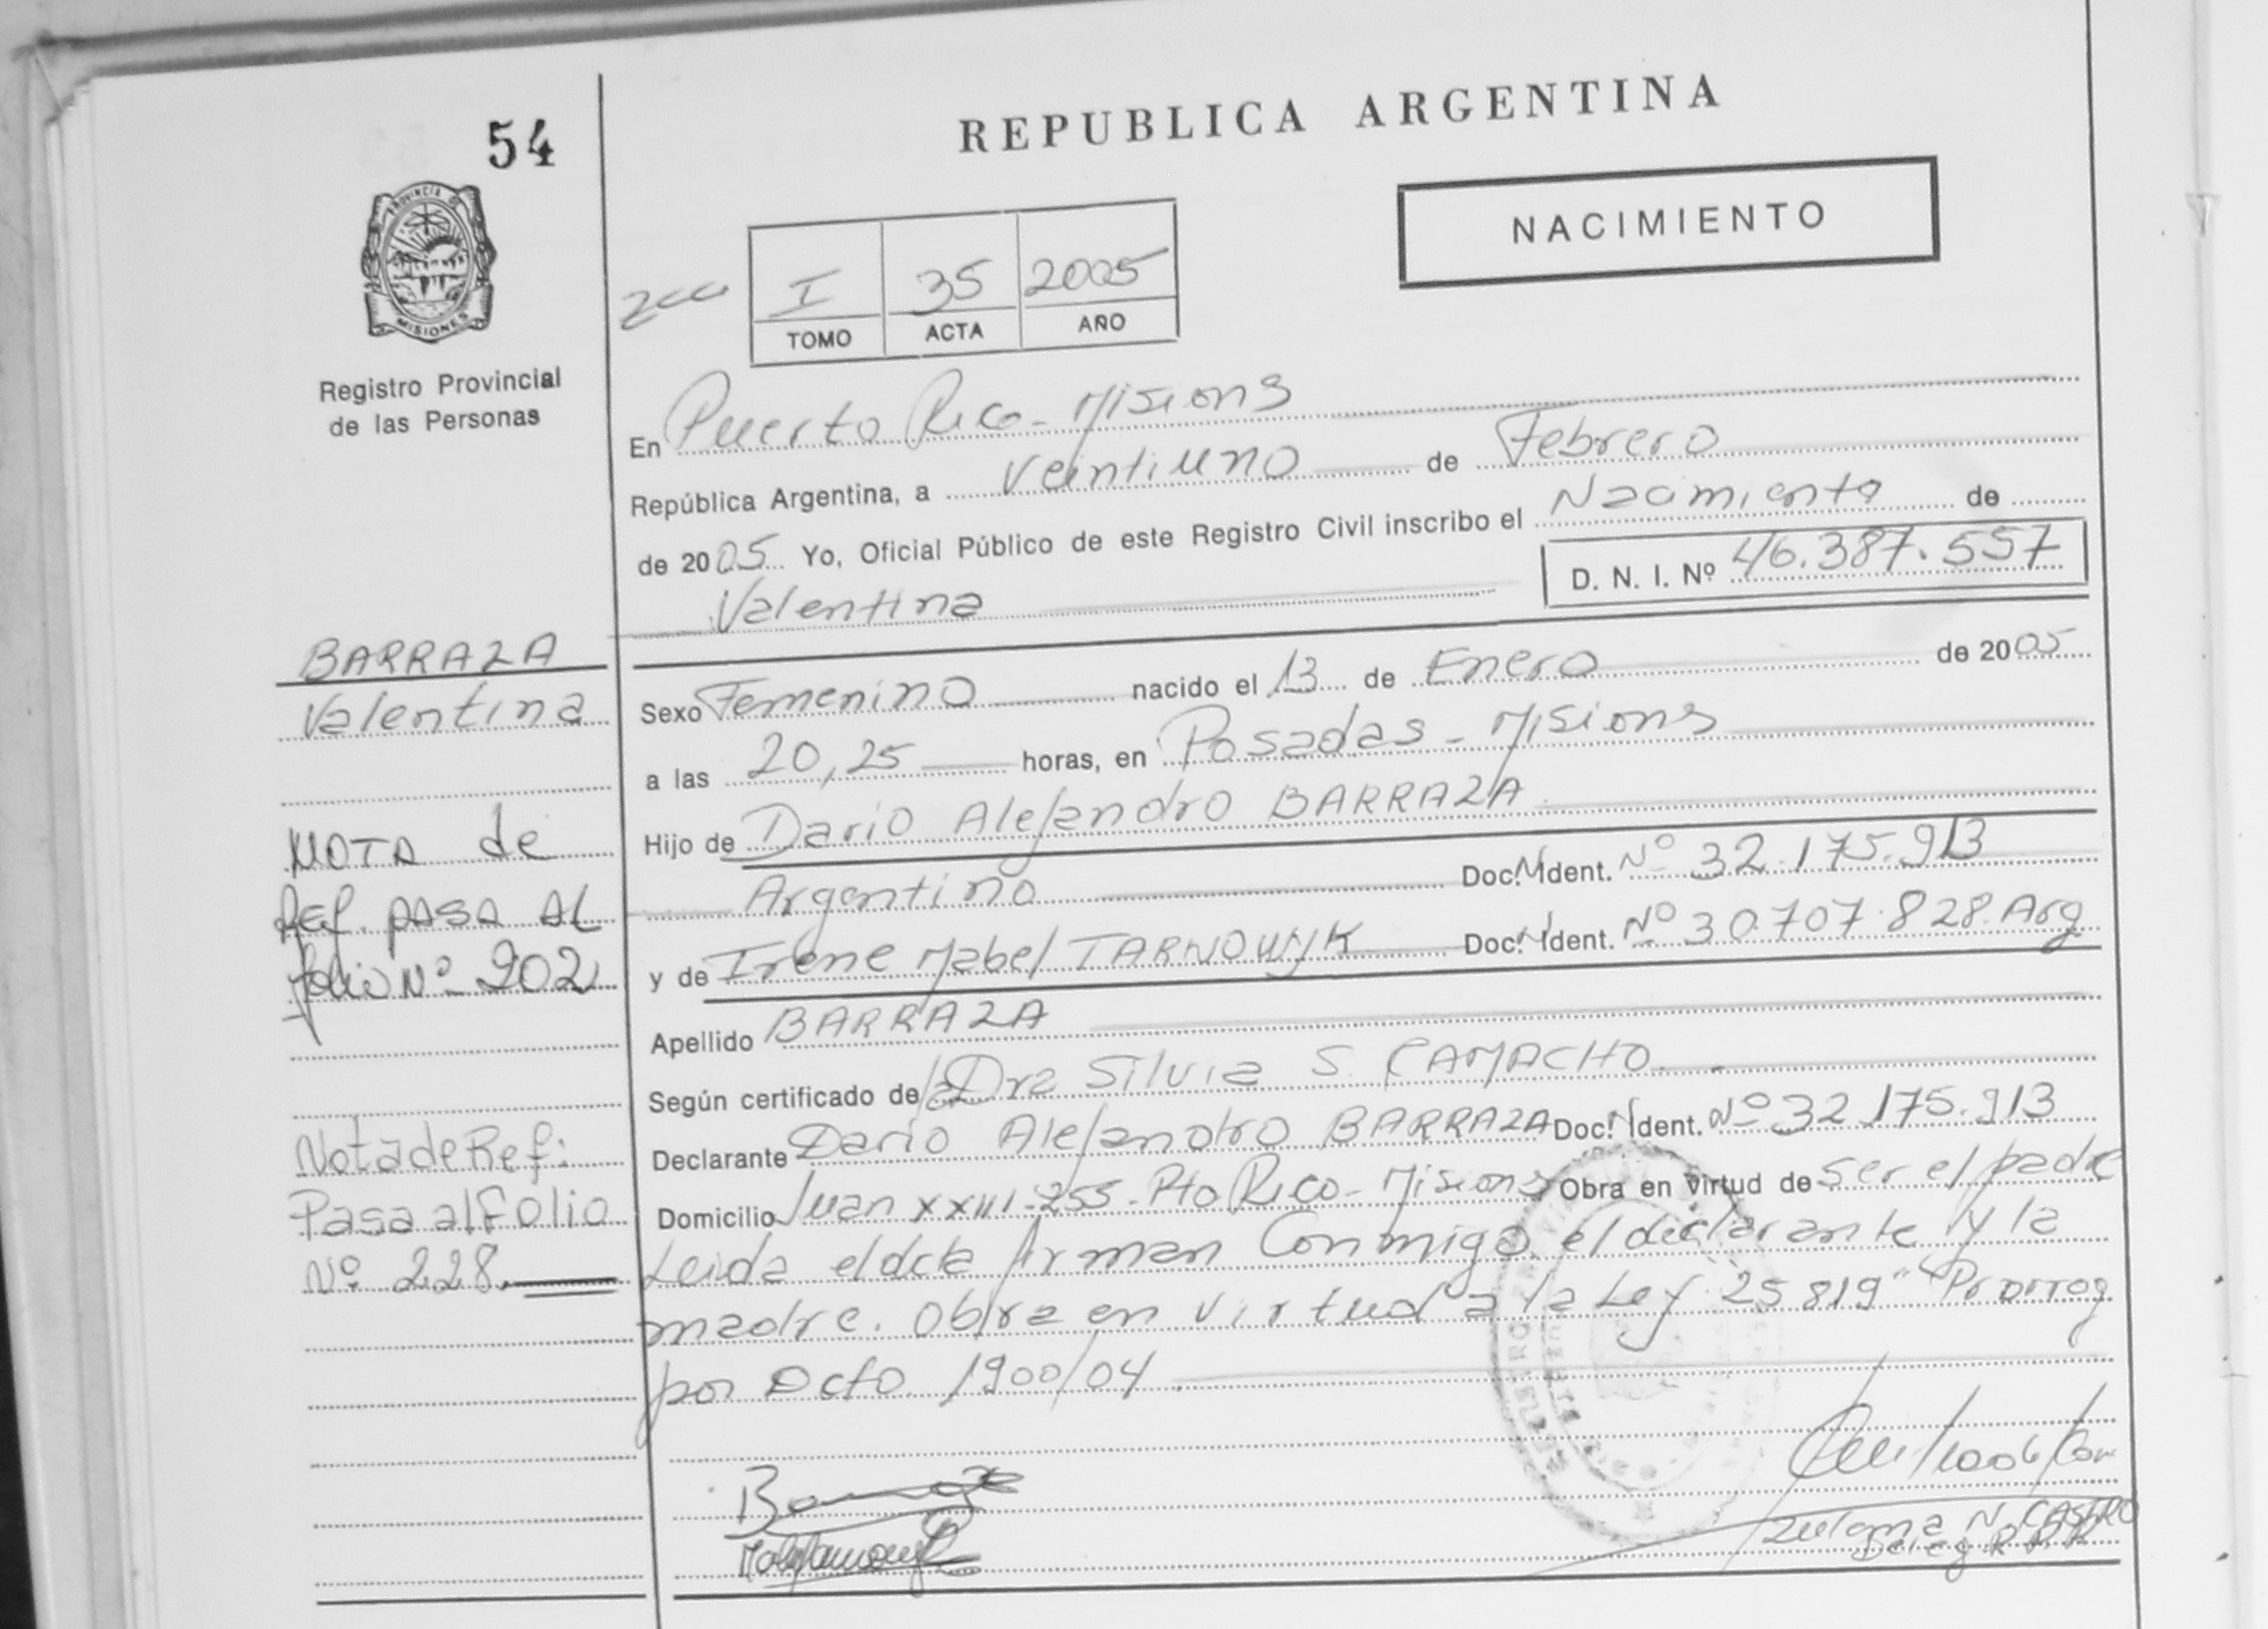 54
REPUBLICA ARGENTINA
NACIMIENTO
PROVINCIA DE
MISIONES
Registro Provincial
de las Personas
I 35 2005
TOMO ACTA AÑO
En Puerto Rico - Misions
República Argentina, a Veintiuno de Febrero
de 2005 Yo, Oficial Público de este Registro Civil inscribo el Nacimiento de
Valentina
D. N. I. Nº 46.387.557
BARRAZA
Valentina
NOTA de
Ref. PASA AL
folio Nº 202
Nota de Ref:
Pasa al Folio
Nº 228
Sexo Femenino nacido el 13 de Enero de 2005
a las 20,25 horas, en Posadas - Misions
Hijo de Dario Alejandro BARRAZA
Argentino Doc. Ident. Nº 32.175.913
y de Irene Mabel TARNOWYK Doc. Ident. Nº 30.707.828 Arg
Apellido BARRAZA
Según certificado de la Dra Silvia S. CAMACHO
Declarante Dario Alejandro BARRAZA Doc. Ident. Nº 32.175.913
Domicilio Juan XXIII - 255 - Pto Rico - Misions Obra en virtud de ser el padre
Leida el acta firman Conmigo el declarante y la
madre. Obra en virtud a la Ley 25819 "Prorrog
por Dcto 1900/04.
N. CASTRO